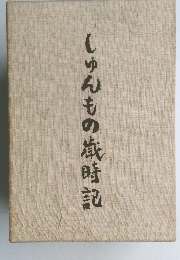 しゅんもの歳時記